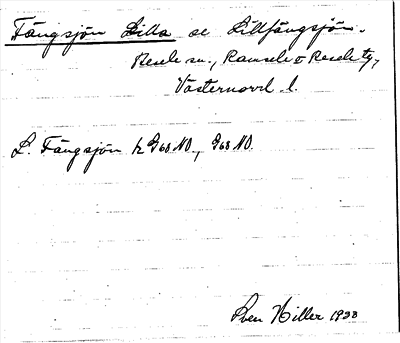 Fängsjön Lilla se Lillfängsjön.
Resele sn., Ramsele o Resele tg,
Västernorrl. l.
L. Fängsjön k G60 NO., G68 NO.
Sven Hiller 1928